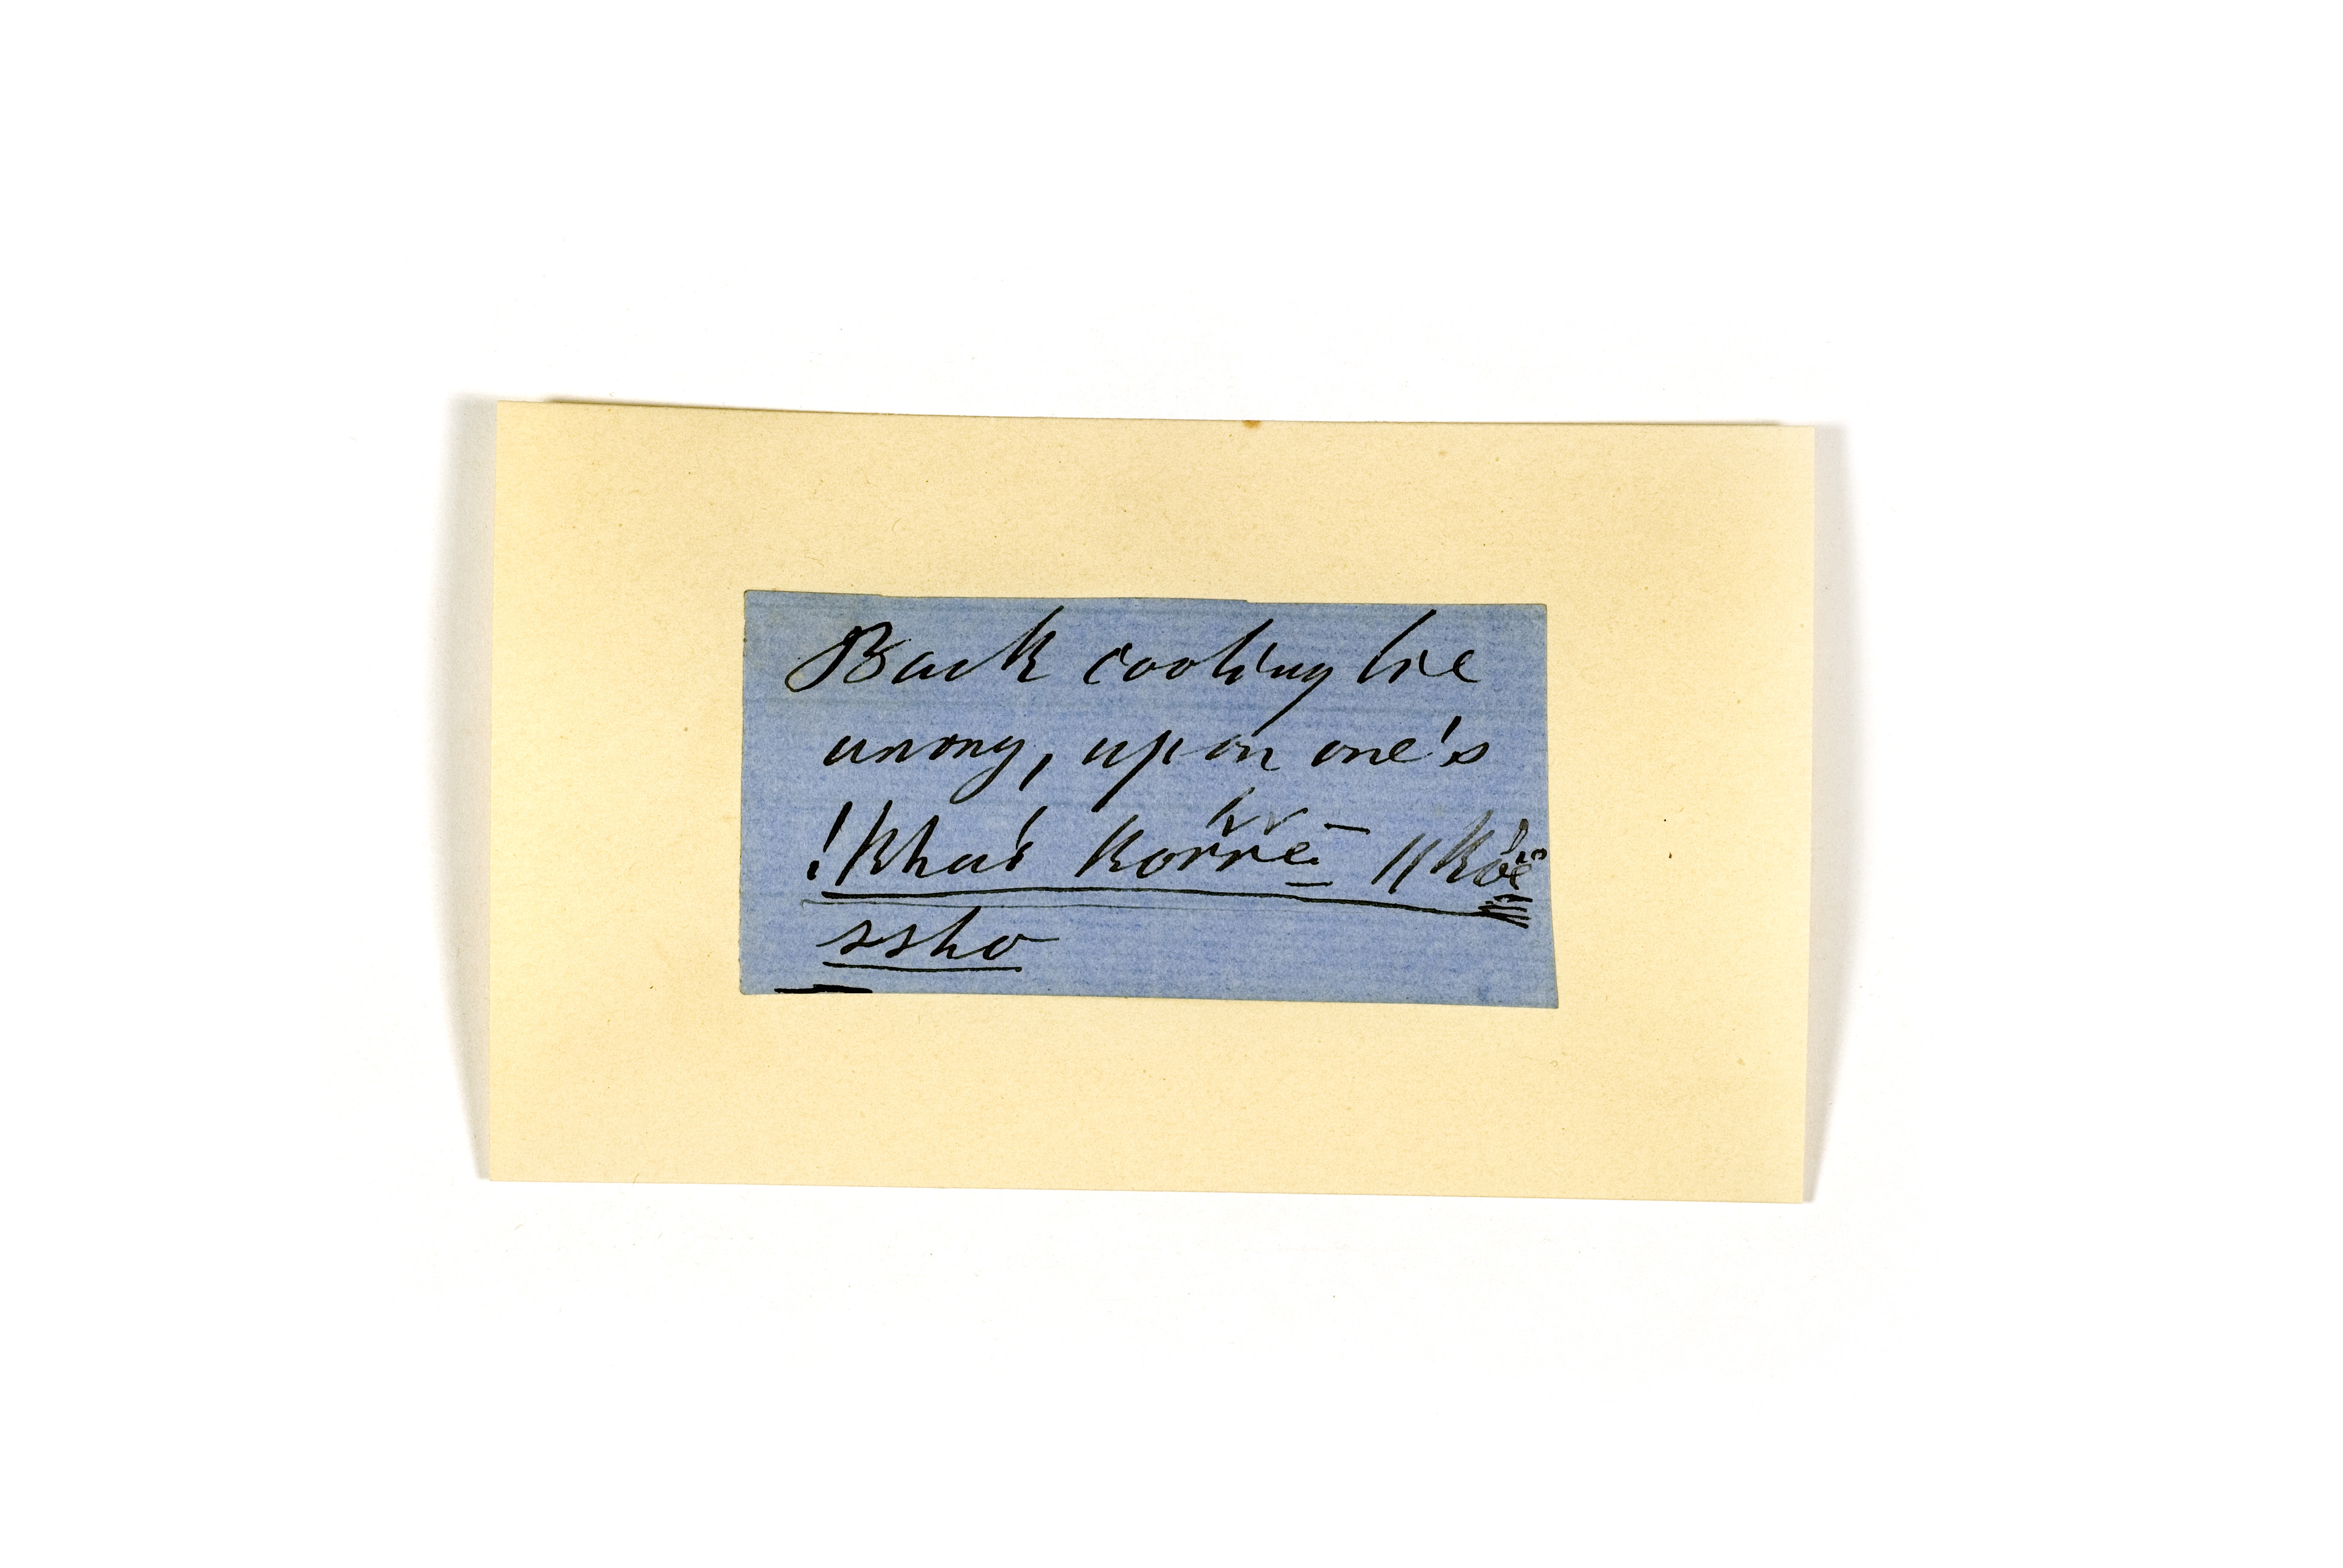 Back cooling lie
wrong, upon one's
!khai korre ||kóë
ssho